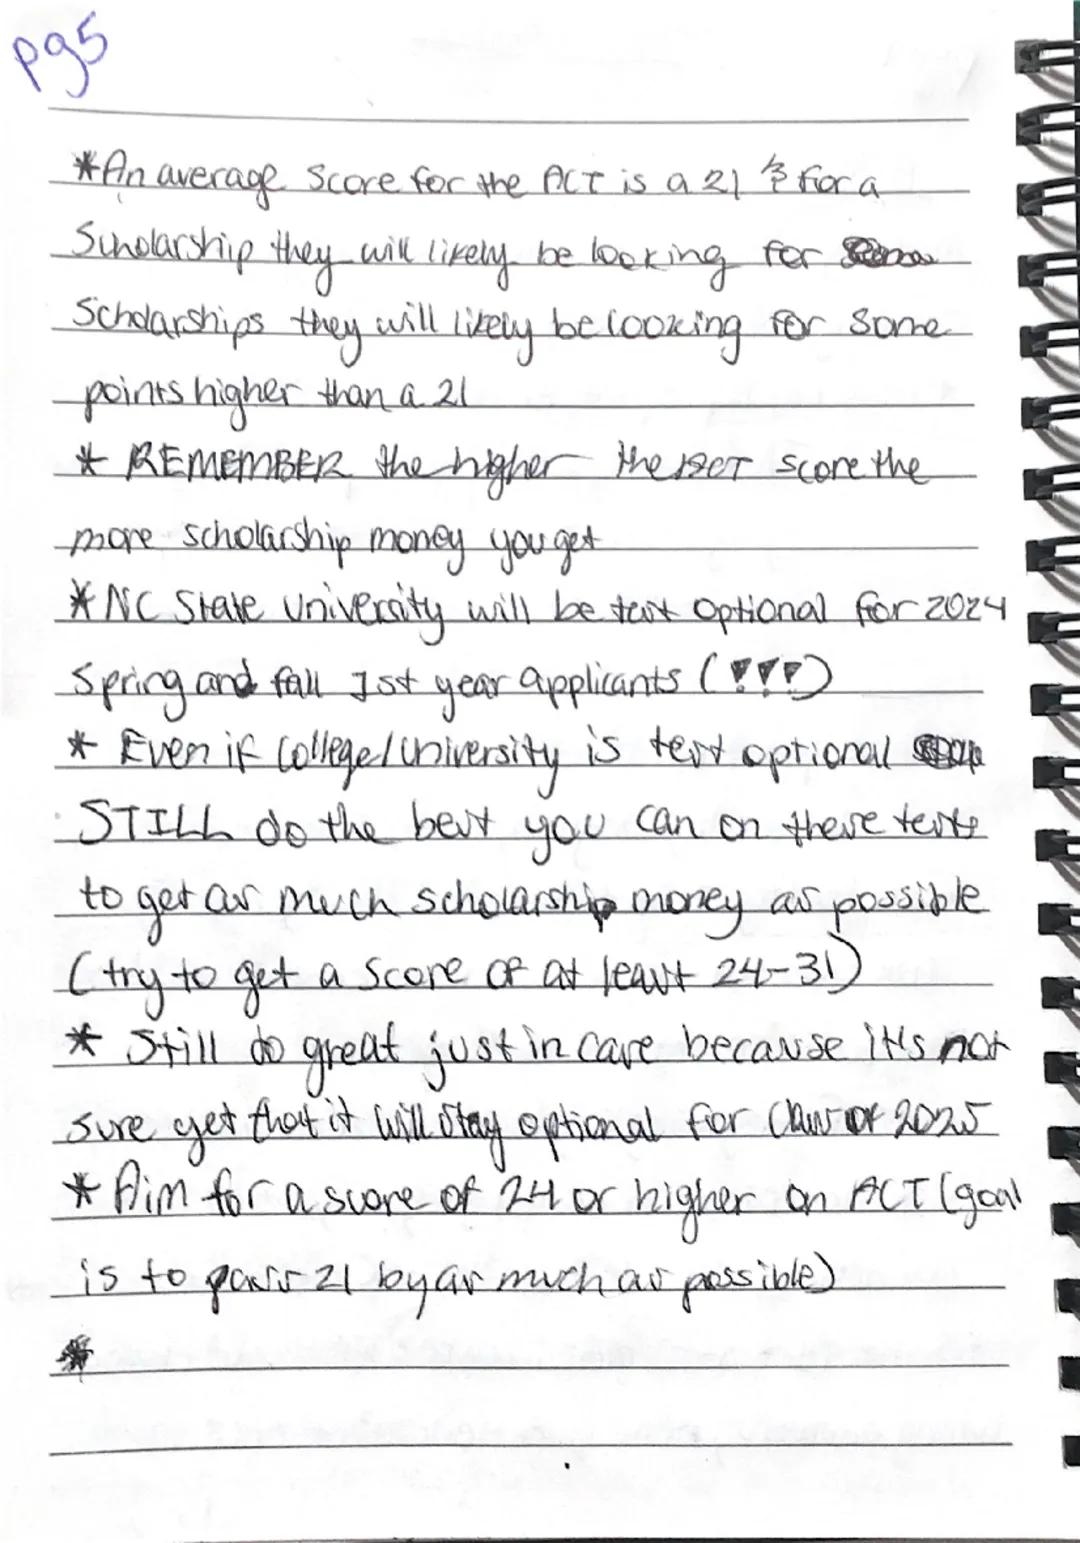 pg5
*An average score for the ACT is a 21 & for a
Scholarship they will likely be looking for
Scholarships they will likely be looking for some
points higher than a 21
* REMEMBER the higher the ACT score the
more scholarship money you get
* NC State University will be test optional for 2024
Spring and fall 1st year applicants (!!!)
* Even if College/University is test optional
STILL do the best you can on these tests
to get as much scholarship money as possible
(try to get a score of at least 24-31)
* Still do great just in case because it's not
sure yet that it will stay optional for class of 2025
* Aim for a score of 24 or higher on ACT (goal
is to pass 21 by as much as possible)
*